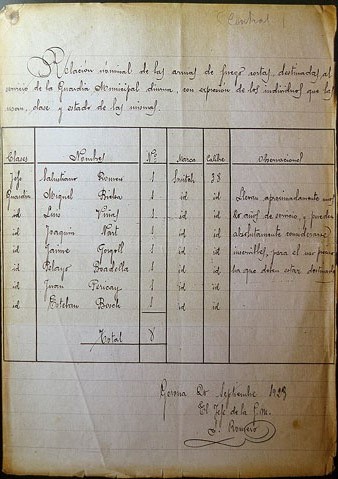 Central
Relación nominal de las armas de fuego cortas, destinadas al
servicio de la Guardia Municipal diurna, con expresión de los individuos que las
usan, clase y estado de las mismas.
Clases Nombres Nº Marca Calibre Observaciones
Jefe Salustiano Romeu 1 38
Guardia Miguel 1 id id Llevan aproximadamente unos
id Luis Viñas 1 id id 20 años de servicio, y pueden
id Joaquín 1 id id absolutamente considerarse
id Jaime 1 id id inservibles, para el uso
id Pelayo Boadella 1 id id que deben estar
id Juan Pericay 1 id id
id Esteban Bosch 1 id id
Total 8
Gerona 20 Septiembre 1923
El Jefe de la G.M.
S. Romeu